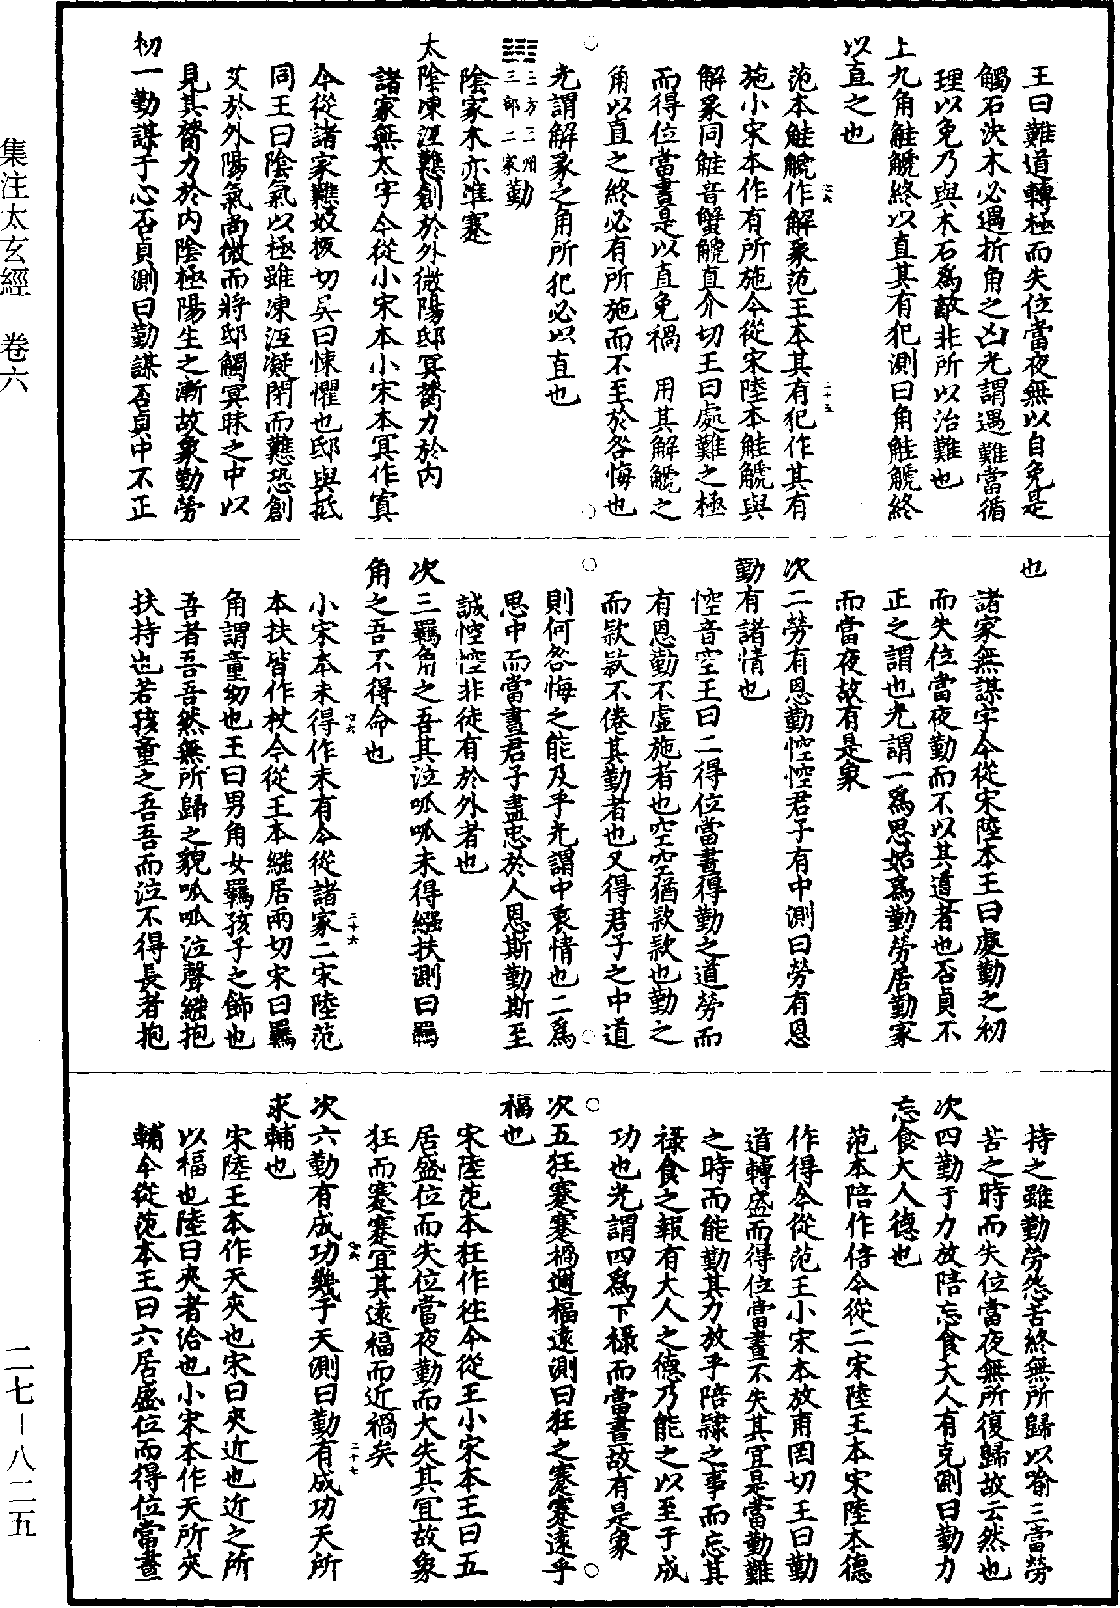 王曰難道轉極而失位當夜無以自免是
觸石決木必遇折角之凶光謂遇難當循
理以免乃與木石爲敵非所以治難也
上九角𧣾觿終以直其有犯測曰角𧣾觿終
以直之也
范本𧣾觿作解豸范王本其有犯作其有
施小宋本作有所施今從宋陸本𧣾觿與
解豸同𧣾音蟹觿直介切王曰處難之極
而得位當晝是以直免禍　用其解觿之
角以直之終必有所施而不至於咎悔也
光謂解豸之角所犯必以直也
三方三州
三部二家
勤
陰家木亦準蹇
太陰凍沍戁創於外微陽邸冥膂力於内
諸家無太字今從小宋本小宋本冥作寘
今從諸家戁奴板切吴曰悚懼也邸與抵
同王曰陰氣以極雖凍沍凝閉而戁恐創
艾於外陽氣尚微而將邸觸冥昧之中以
見其膂力於内陰極陽生之漸故象勤勞
初一勤謀于心否貞測曰勤謀否貞中不正
也
諸家無謀字今從宋陸本王曰處勤之初
而失位當夜勤而不以其道者也否貞不
正之謂也光謂一爲思始爲勤勞居勤家
而當夜故有是象
次二勞有恩勤悾悾君子有中測曰勞有恩
勤有諸情也
悾音空王曰二得位當晝得勤之道勞而
有恩勤不虚施者也空空猶款款也勤之
而款款不倦其勤者也又得君子之中道
則何咎悔之能及乎光謂中衷情也二爲
思中而當晝君子盡忠於人恩斯勤斯至
誠悾悾非徒有於外者也
次三羈角之吾其泣呱呱未得繈扶測曰羈
角之吾不得命也
小宋本未得作未有今從諸家二宋陸范
本扶皆作杖今從王本繈居兩切宋曰羈
角謂童幼也王曰男角女羈孩子之飾也
吾者吾吾然無所歸之貌呱呱泣聲繈抱
扶持也若孩童之吾吾而泣不得長者抱
持之雖勤勞怨苦終無所歸以喻三當勞
苦之時而失位當夜無所復歸故云然也
次四勤于力放陪忘食大人有克測曰勤力
忘食大人德也
范本陪作倍今從二宋陸王本宋陸本德
作得今從范王小宋本放甫罔切王曰勤
道轉盛而得位當晝不失其宜是當勤難
之時而能勤其力放乎陪隸之事而忘其
禄食之報有大人之德乃能之以至于成
功也光謂四爲下禄而當晝故有是象
次五狂蹇蹇禍邇福遠測曰狂之蹇蹇遠乎
福也
宋陸范本狂作往今從王小宋本王曰五
居盛位而失位當夜勤而大失其宜故象
狂而蹇蹇宜其遠福而近禍矣
次六勤有成功幾于天測曰勤有成功天所
求輔也
宋陸王本作天夾也宋曰夾近也近之所
以福也陸曰夾者洽也小宋本作天所夾
輔今從范本王曰六居盛位而得位當晝
集注太玄經　卷六
二七－八二五